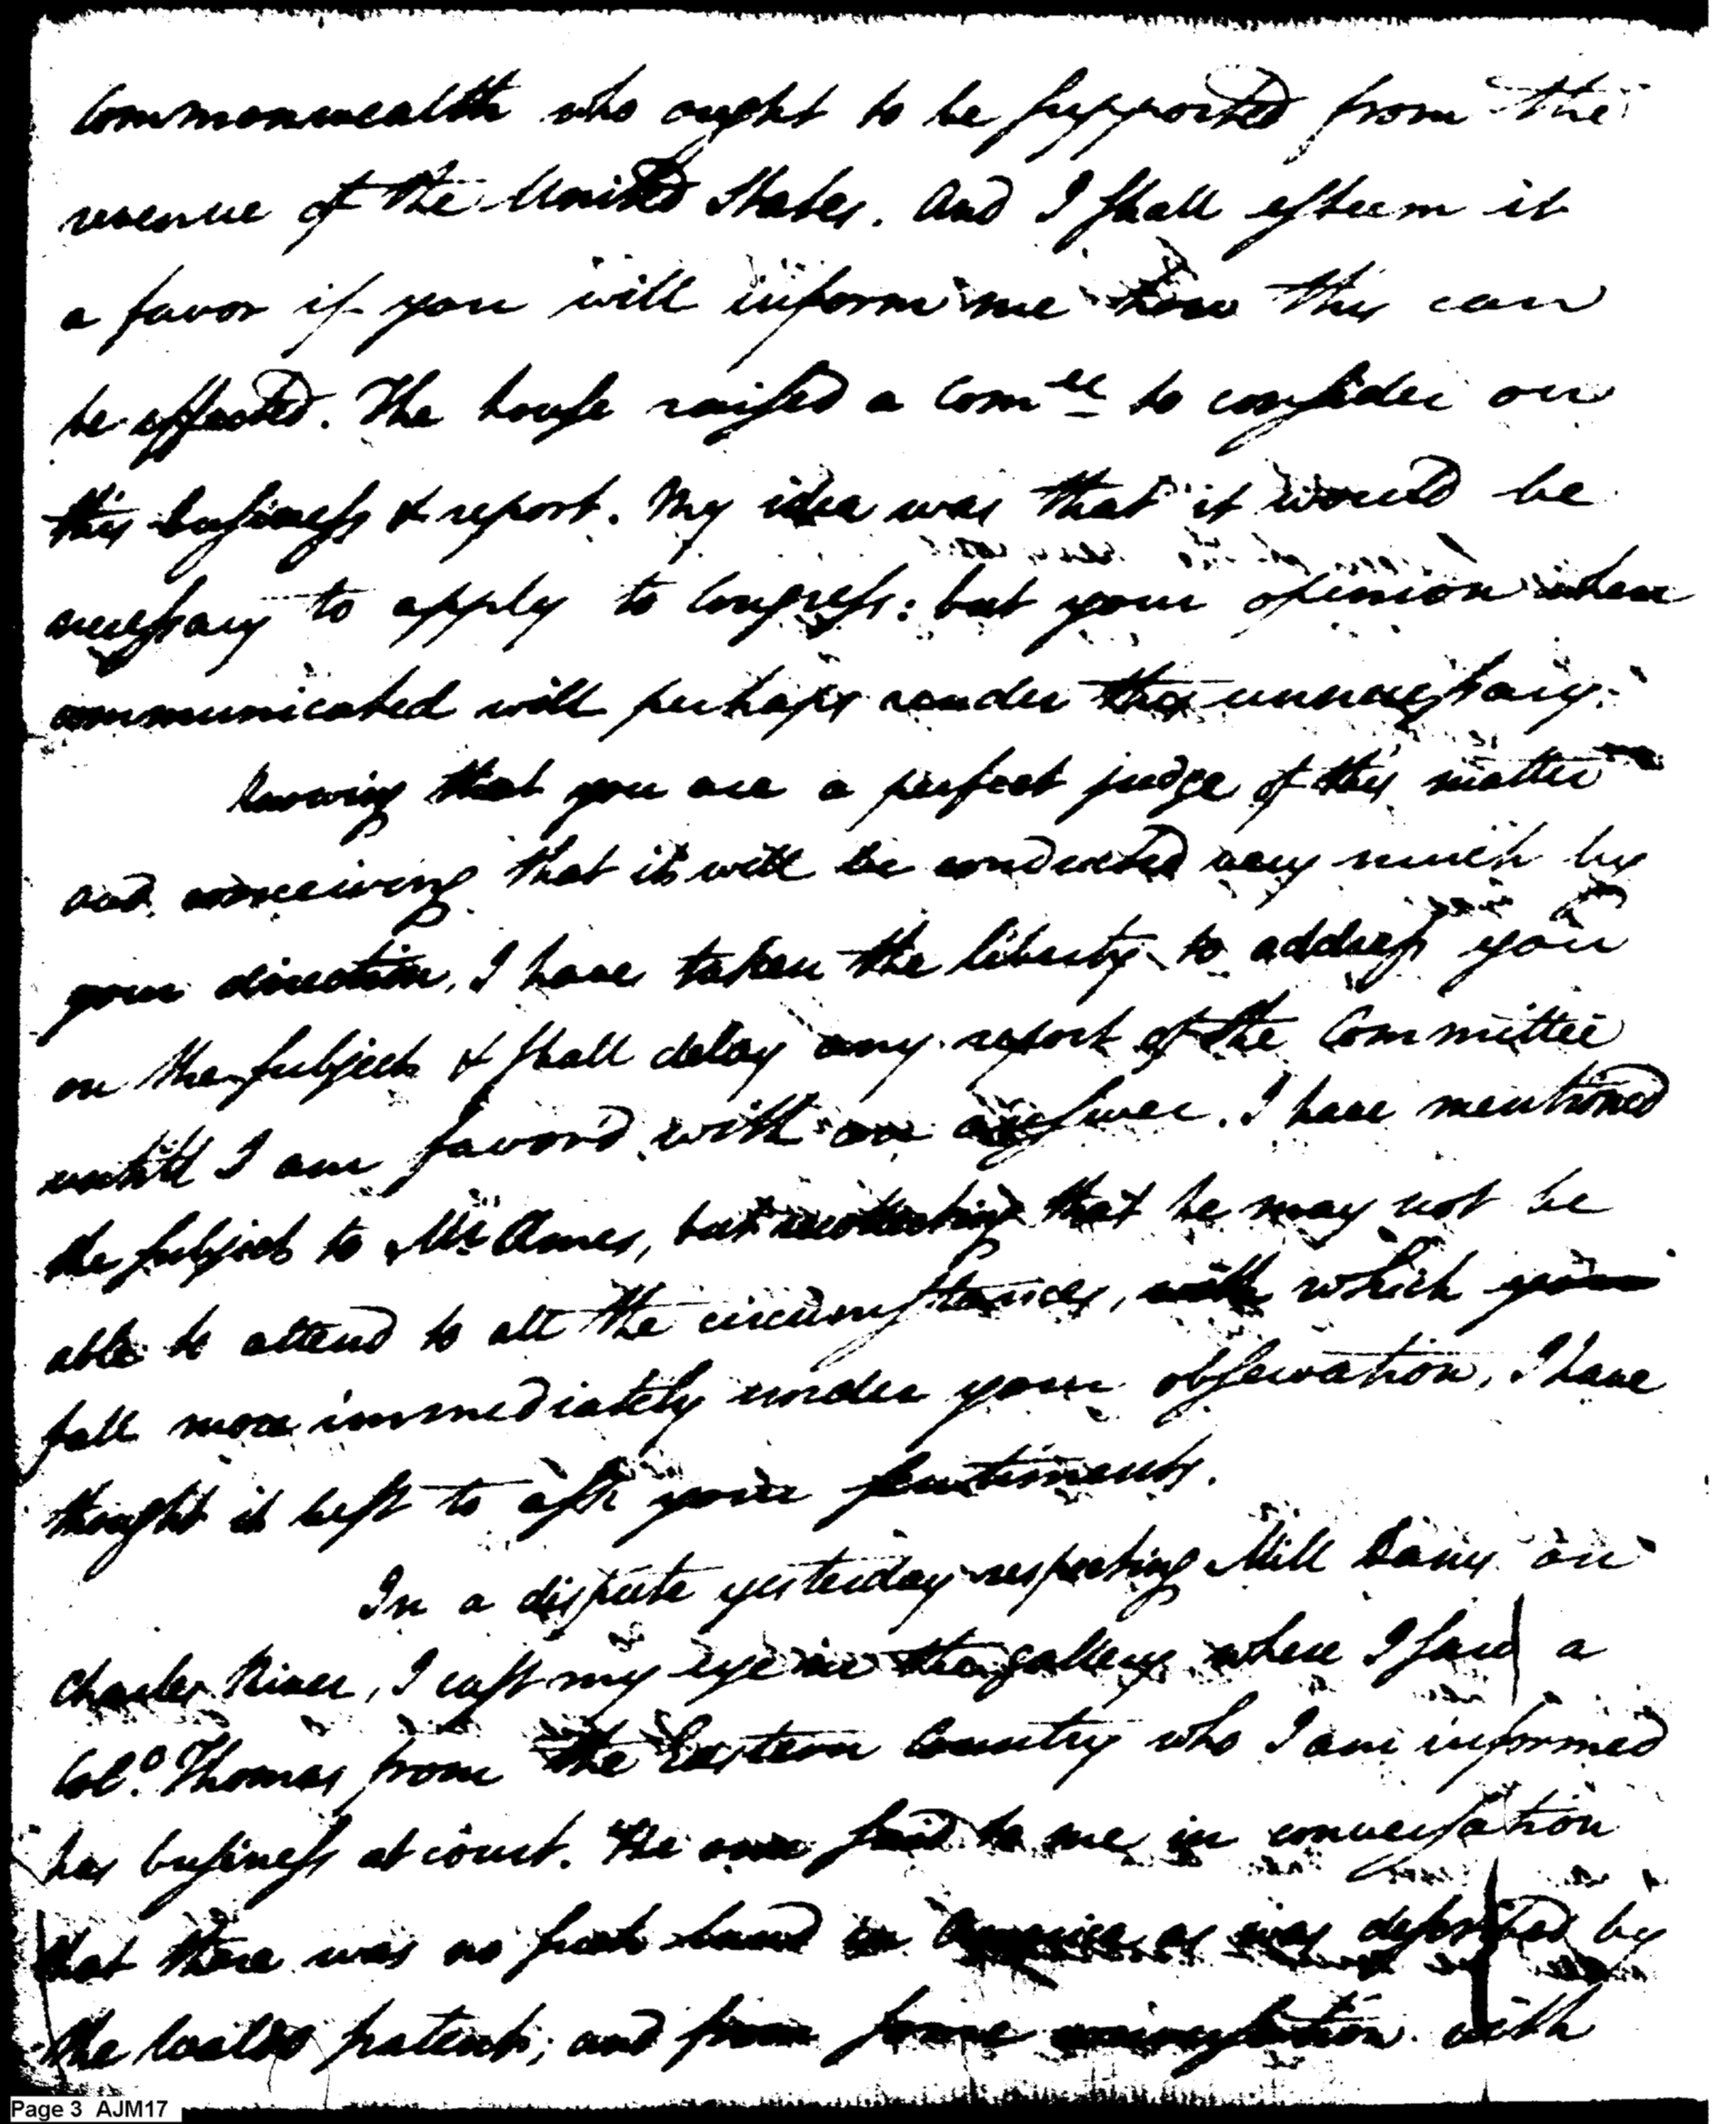 Commonwealth who ought to be supported from the
revenue of the United States. And I shall esteem it
a favor if you will inform me how this can
be effected. The house raised a Com.ee to consider on
this business & report. My idea was that it would be
necessary to apply to Congress: but your opinion when
communicated will perhaps render this unnecessary.
Knowing that you are a perfect judge of this matter
and conceiving that it will be conducted very much by
your direction, I have taken the liberty to address you
on the subject & shall delay any report of the Committee
untill I am favor'd with an answer. I have mentioned
the subject to Mr. Ames, but recollecting that he may not be
able to attend to all the circumstances, with which you
fall more immediately under your observation, I have
thought it best to ask your sentiments.
In a dispute yesterday respecting Mill Dams on
Charles River, I cast my eye in the gallery where I saw a
Colo. Thomas from the Eastern Country who I am informed
has business at court. He said to me in conversation
that there was no such land in America as was by
the Waldo patent; and from some conversation with
Page 3 AJM17